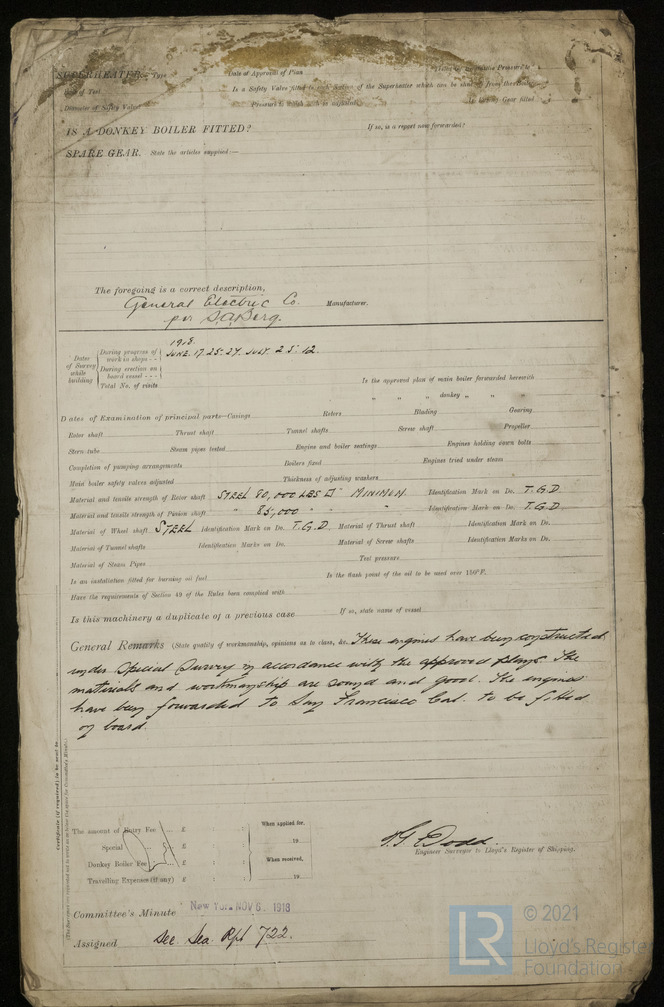 SUPERHEATER. Type Date of Approval of Plan
Date of Test Is a Safety Valve fitted to each Section of the Superheater which can be shut off from the Boiler
Diameter of Safety Valve Pressure to which each is adjusted Is Easing Gear fitted
IS A DONKEY BOILER FITTED? If so, is a report now forwarded?
SPARE GEAR. State the articles supplied:—
The foregoing is a correct description,
General Electric Co. Manufacturer.
per S.A. Berg.
1918.
Dates of Survey while building
During progress of work in shops - - JUNE. 17. 25. 27. JULY. 2. 5. 12.
During erection on board vessel - - -
Total No. of visits
Is the approved plan of main boiler forwarded herewith
" " " donkey " " "
Dates of Examination of principal parts—Casings Rotors Blading Gearing
Rotor shaft Thrust shaft Tunnel shafts Screw shaft Propeller
Stern tube Steam pipes tested Engine and boiler seatings Engines holding down bolts
Completion of pumping arrangements Boilers fixed Engines tried under steam
Main boiler safety valves adjusted Thickness of adjusting washers
Material and tensile strength of Rotor shaft STEEL 80,000 LBS □" MINIMUM Identification Mark on Do. T.G.D
Material and tensile strength of Pinion shaft " 85,000 " " Identification Mark on Do. T.G.D
Material of Wheel shaft STEEL Identification Mark on Do. T.G.D. Material of Thrust shaft Identification Mark on Do.
Material of Tunnel shafts Identification Marks on Do. Material of Screw shafts Identification Marks on Do.
Material of Steam Pipes Test pressure
Is an installation fitted for burning oil fuel Is the flash point of the oil to be used over 150°F.
Have the requirements of Section 49 of the Rules been complied with
Is this machinery a duplicate of a previous case If so, state name of vessel
General Remarks (State quality of workmanship, opinions as to class, &c. These engines have been constructed
under Special Survey in accordance with the approved plans. The
materials and workmanship are sound and good. The engines
have been forwarded to San Francisco Cal. to be fitted
on board.
Certificate (if required) to be sent to
The amount of Entry Fee ... £ : : When applied for,
Special ... £ : : 19
Donkey Boiler Fee ... £ : : When received,
Travelling Expenses (if any) £ : : 19
T. G. Dodd.
Engineer Surveyor to Lloyd's Register of Shipping.
Committee's Minute New York NOV 6 1918
Assigned See Sea. Rpt 722.
LR © 2021
Lloyd's Register
Foundation